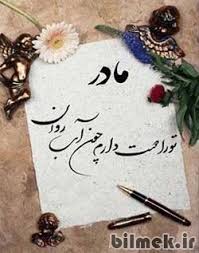 مادر
تو را دوست دارم چون آب روان
bilmek.ir